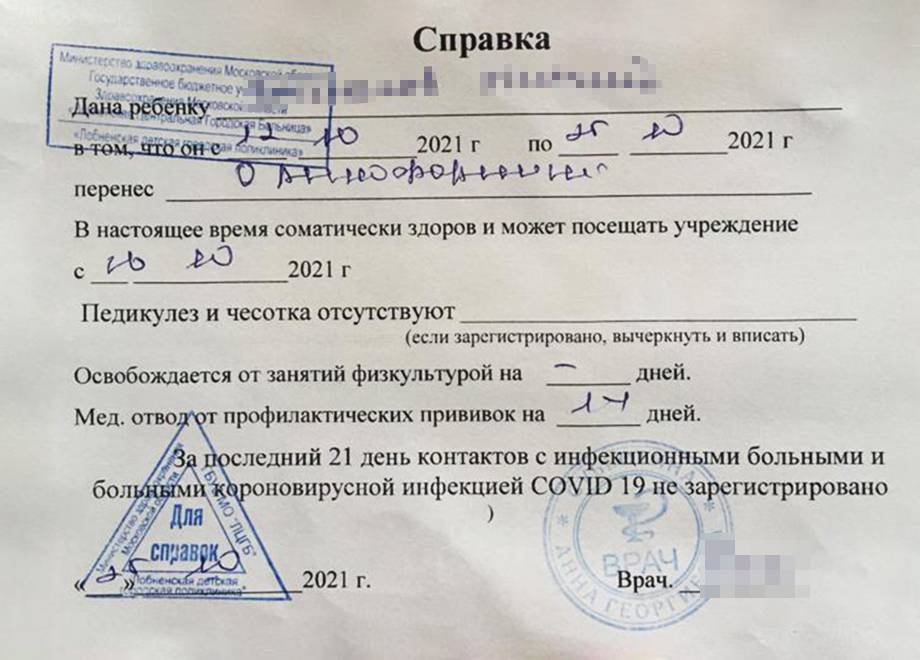 Справка
Министерство здравоохранения Московской
Государственное бюджетное
Здравоохранения Московской области
Центральная Городская Больница»
«Лобненская детская городская поликлиника»
Дана ребенку
в том, что он с 12 10 2021 г по 25 10 2021 г
перенес О ринофарингит
В настоящее время соматически здоров и может посещать учреждение
с 26 10 2021 г
Педикулез и чесотка отсутствуют
(если зарегистрировано, вычеркнуть и вписать)
Освобождается от занятий физкультурой на – дней.
Мед. отвод от профилактических прививок на 14 дней.
За последний 21 день контактов с инфекционными больными и
больными короновирусной инфекцией COVID 19 не зарегистрировано
)
Министерство здравоохранения
Московской области
ГБУЗ МО "ЛЦГБ"
Для
справок
Лобненская детская
городская поликлиника"
« 25 » 10 2021 г.
Врач.
ВРАЧ
АННА ГЕОРГИЕ